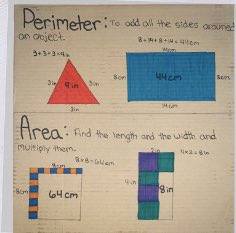 Perimeter: To add all the sides around
an object.
3+3+3=9in
8+14+8+14=44cm
14cm
3in 9in 3in
3in
8cm 44cm 8cm
14cm
Area: Find the length and the width and
multiply them.
8x8=64cm
8cm
8cm 64cm
2in 4x2=8in
4in 8in